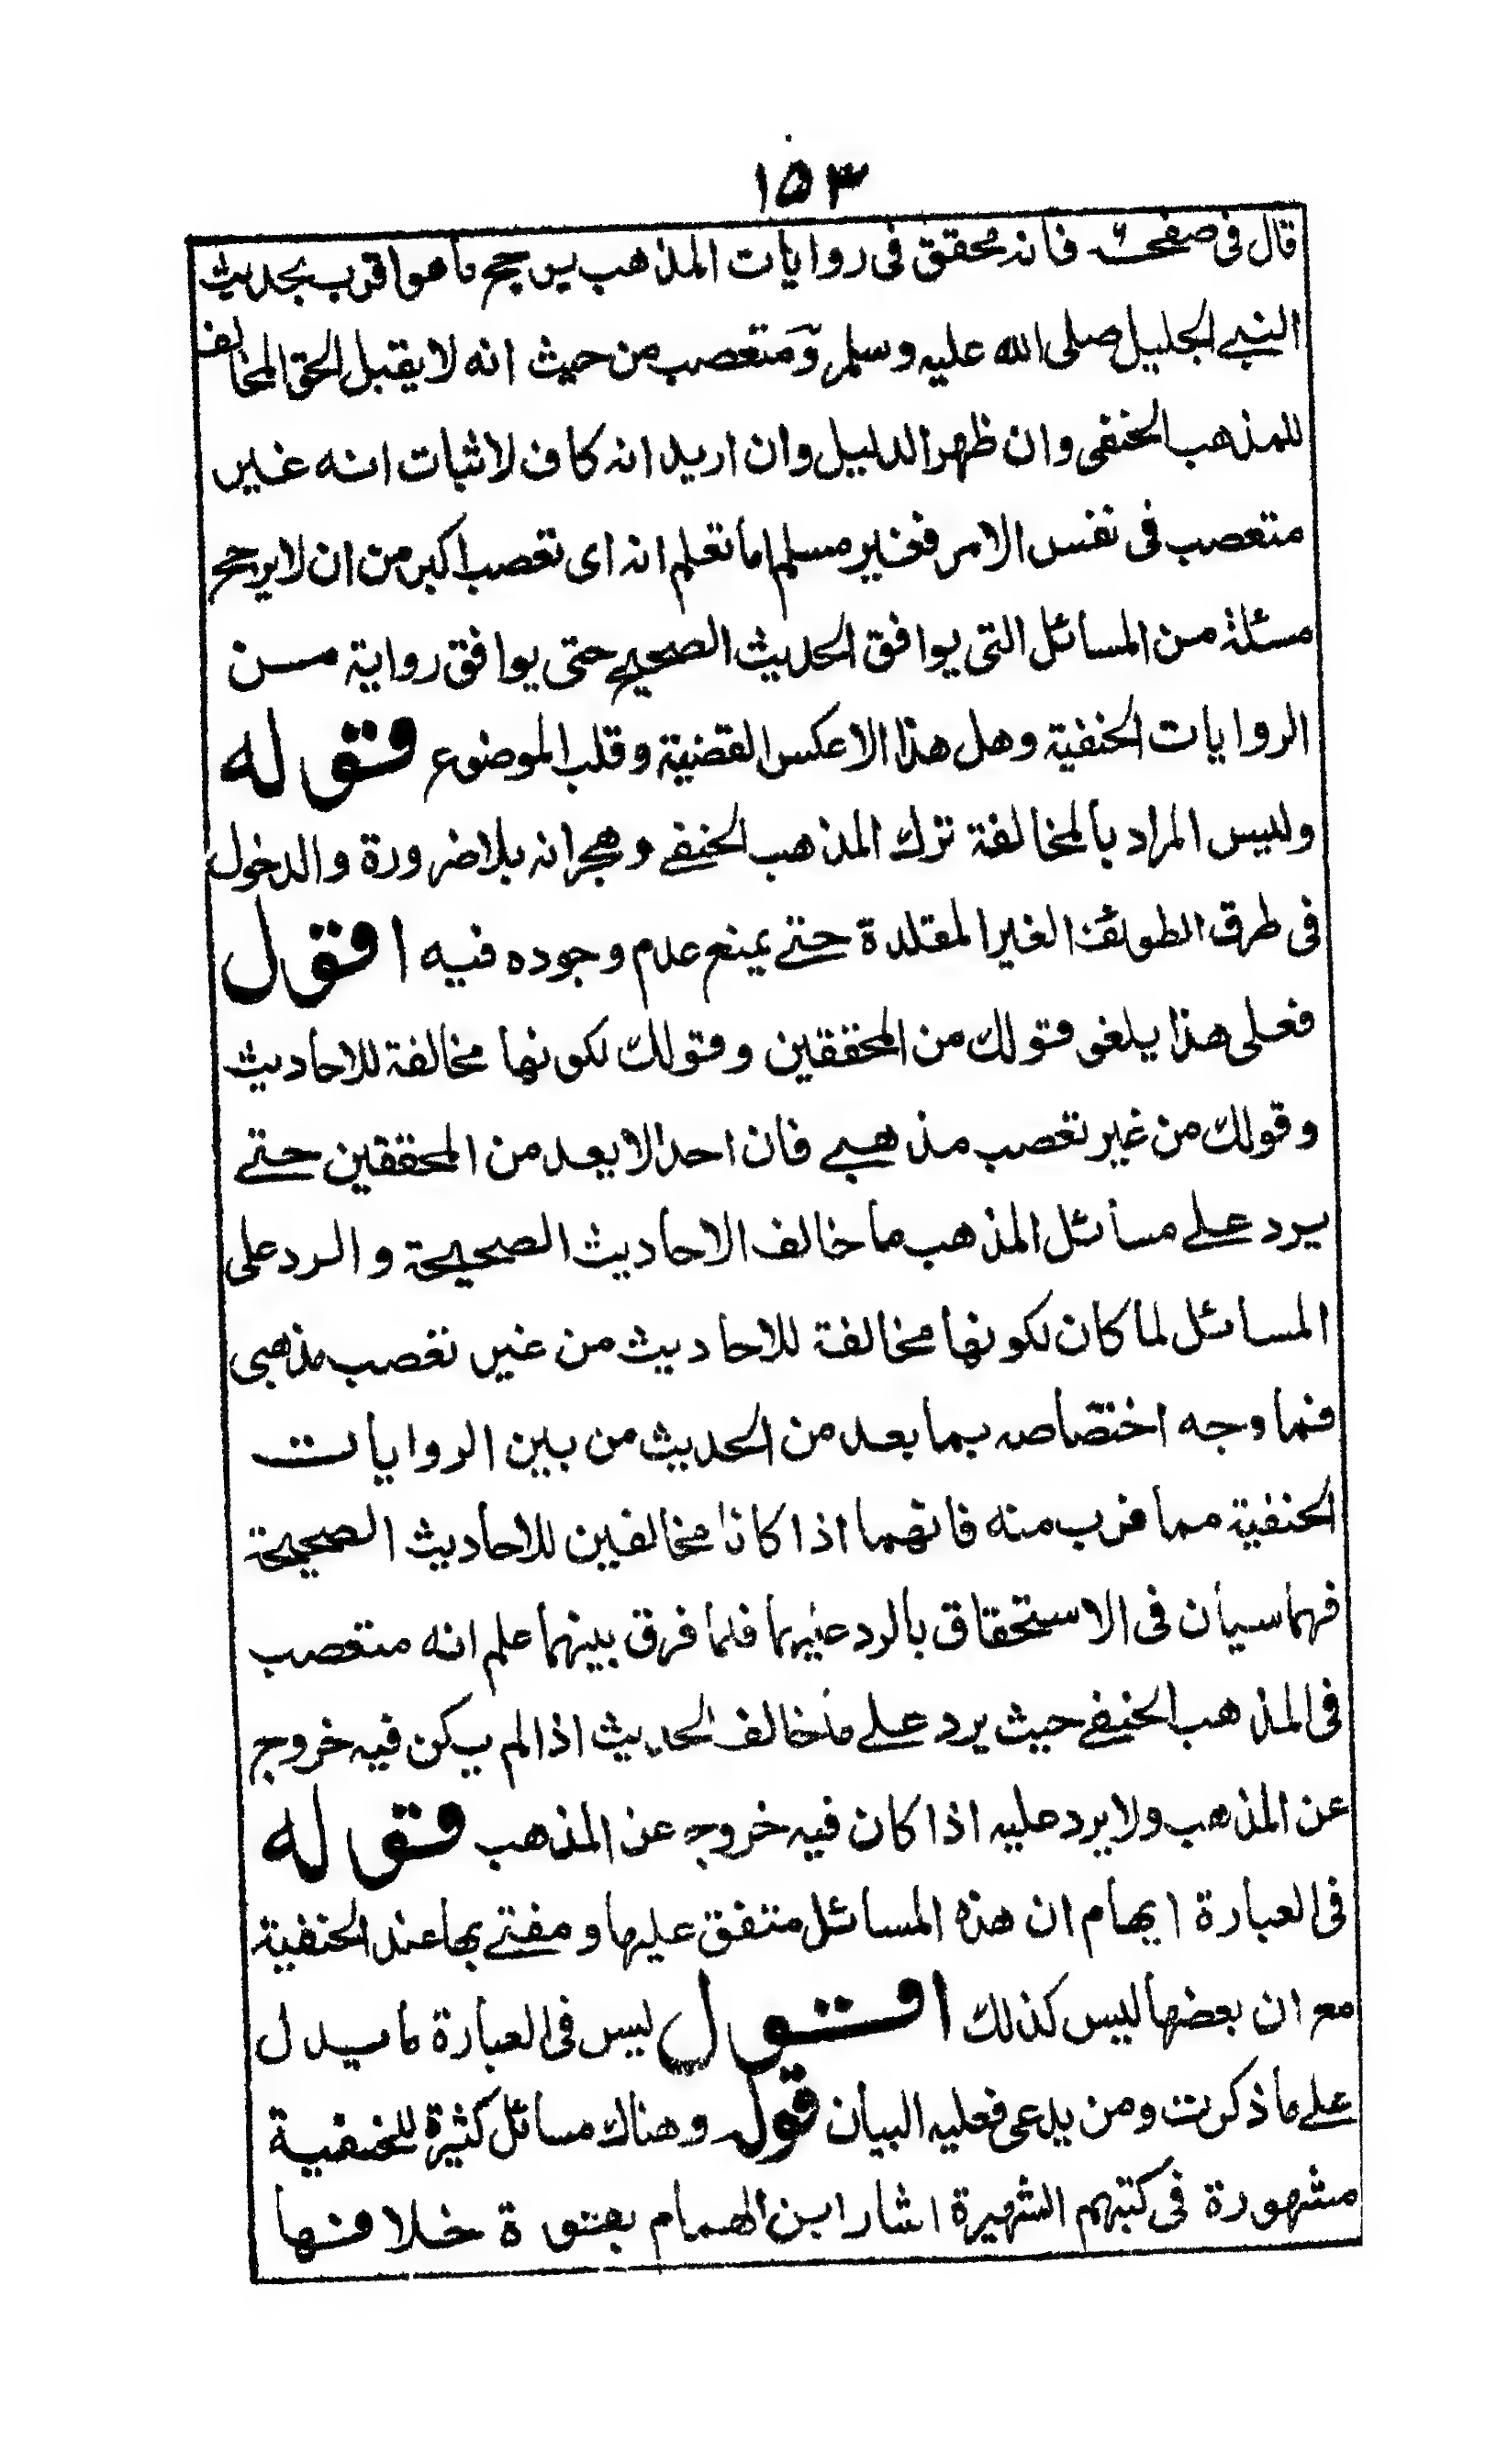 ١٥٣
قال فى صفحة ٦ فانه محقق فى روايات المذهب يرجح ما هو اقرب بحديث
النبي الجليل صلى الله عليه وسلم ومتعصب من حيث انه لا يقبل الحق المخالف
للمذهب الحنفى وان ظهر الدليل وان اريد انه كاف لاثبات انه غير
متعصب فى نفس الامر فغير مسلم اما تعلم انه اى تعصب اكبر من ان لا يرجح
مسئلة من المسائل التى يوافق الحديث الصحيح حتى يوافق رواية من
الروايات الحنفية وهل هذا الا عكس القضية وقلب الموضوع قوله
وليس المراد بالمخالفة ترك المذهب الحنفي وهجرانه بلا ضرورة والدخول
فى طرق الطوائف الغير المقلدة حتے يمنع عدم وجوده فيه اقول
فعلى هذا يلغو قولك من المحققين وقولك لكونها مخالفة للاحاديث
وقولك من غير تعصب مذهبي فان احدا لا يعد من المحققين حتے
يرد علے مسائل المذهب ما خالف الاحاديث الصحيحة والرد على
المسائل لما كان لكونها مخالفة للاحاديث من غير تعصب مذهبى
فما وجه اختصاصه بما بعد من الحديث من بين الروايات
الحنفية مما قرب منه فانهما اذا كانا مخالفين للاحاديث الصحيحة
فهما سيان فى الاستحقاق بالرد عليهما فلما فرق بينهما علم انه متعصب
فى المذهب الحنفے حيث يرد علے ما خالف الحديث اذا لم يكن فيه خروج
عن المذهب ولا يرد عليه اذا كان فيه خروج عن المذهب قوله
فى العبارة ايهام ان هذه المسائل متفق عليها ومفتے بها عند الحنفية
مع ان بعضها ليس كذلك اقول ليس فى العبارة ما يدل
علے ما ذكرت ومن يدعى فعليه البيان قوله وهناك مسائل كثيرة للحنفية
مشهورة فى كتبهم الشهيرة اشار ابن الهمام بقوة خلافها